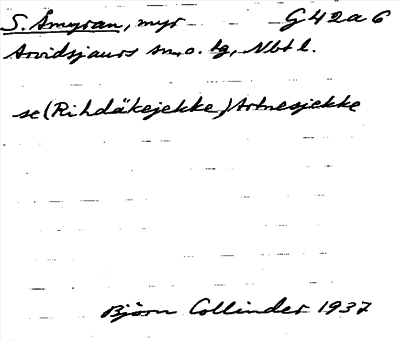 S. Åmyran, myr G 42 a 6
Arvidsjaurs sn. o. tg, Nbt l.
se (Rihdäkejekke,) Artnesjekke
Björn Collinder 1937